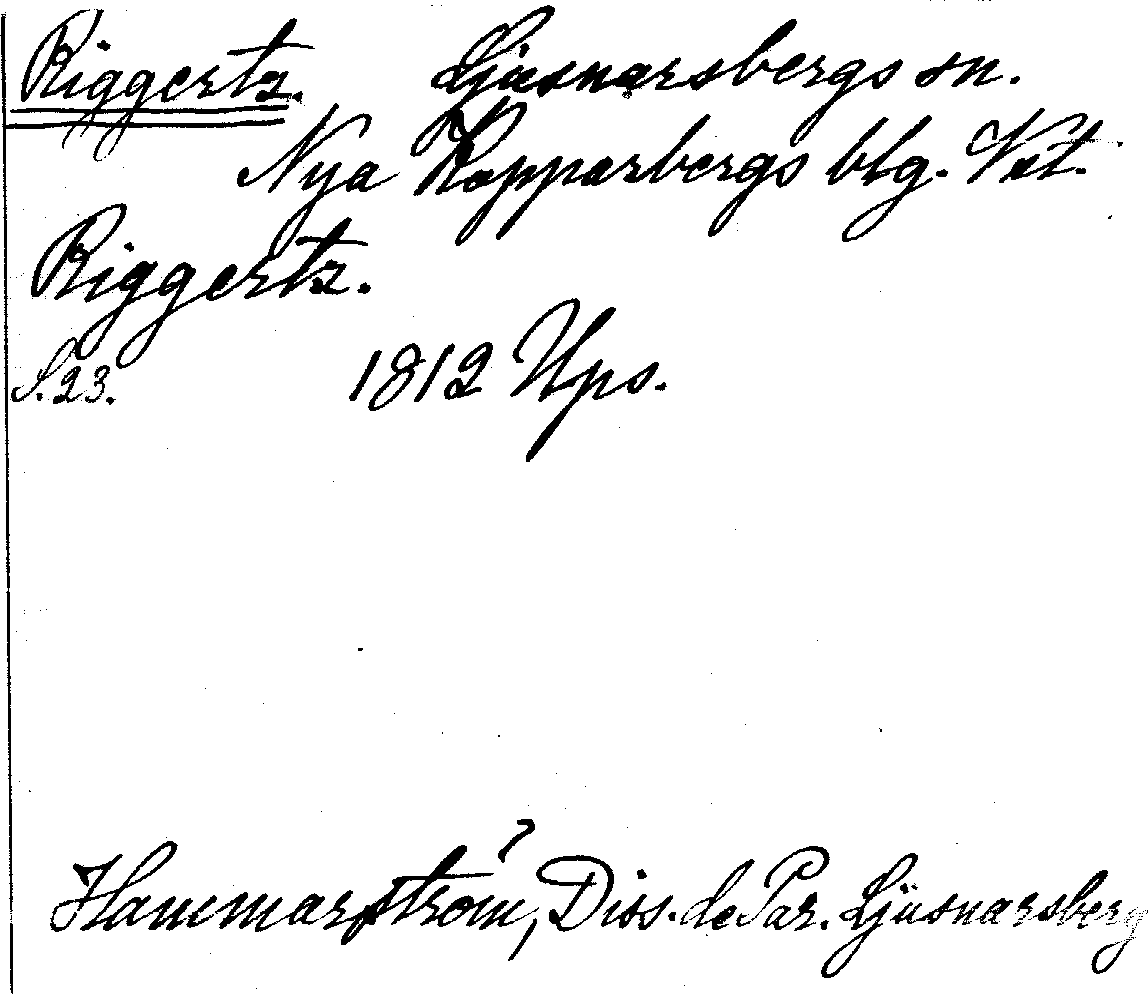 Riggertz. Ljusnarsbergs sn.
Nya Kopparbergs blg. Vet.
Riggertz.
S. 23. 1812 Ups.
Hammarström, Diss. de Par. Ljusnarsberg